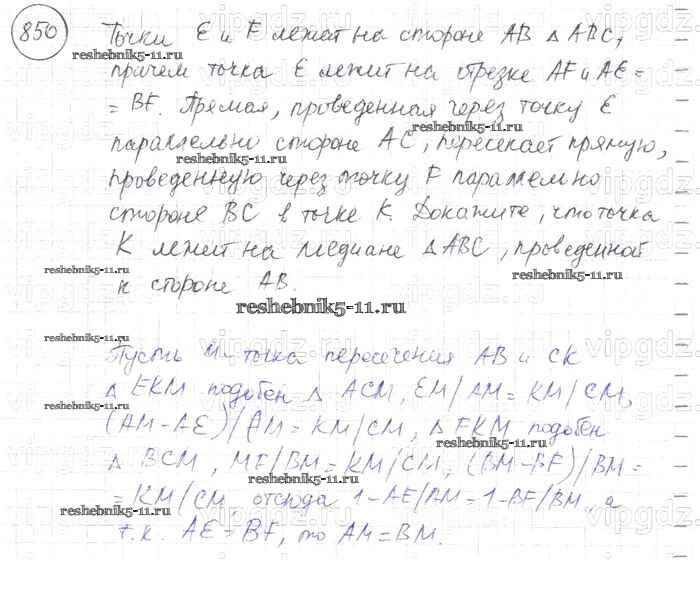 850
Точки E и F лежат на стороне AB △ ABC,
reshebnik5-11.ru
причем точка E лежит на отрезке AF и AE =
= BF. Прямая, проведенная через точку E
reshebnik5-11.ru
параллельно стороне AC, пересекает прямую,
reshebnik5-11.ru
проведенную через точку F параллельно
стороне BC в точке K. Докажите, что точка
K лежит на медиане △ ABC, проведенной
reshebnik5-11.ru reshebnik5-11.ru
к стороне AB.
reshebnik5-11.ru
reshebnik5-11.ru
Пусть M – точка пересечения AB и CK
△ EKM подобен △ ACM, EM/AM = KM/CM,
reshebnik5-11.ru
(AM-AE)/AM = KM/CM, △ FKM подобен
reshebnik5-11.ru
△ BCM, MF/BM = KM/CM, (BM-BF)/BM =
reshebnik5-11.ru
= KM/CM, отсюда 1-AE/AM = 1-BF/BM, а
reshebnik5-11.ru
т.к. AE = BF, то AM = BM.
reshebnik5-11.ru